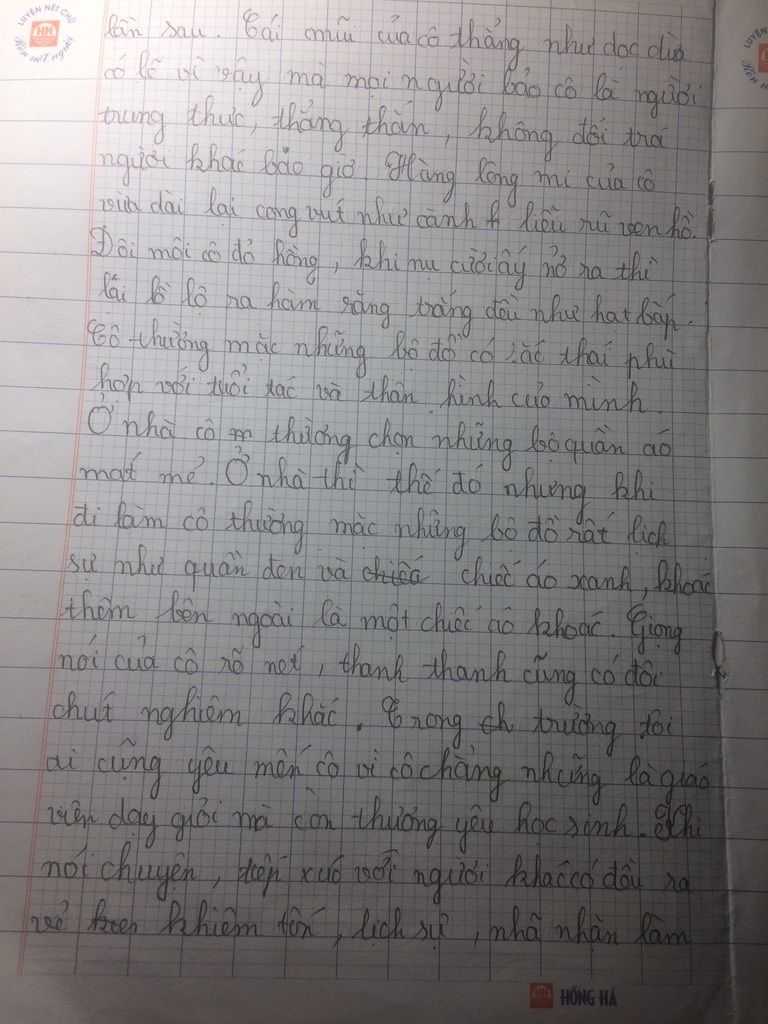 LUYỆN NÉT CHỮ
HH
Rèn nết người
LUYỆN
lần sau. Cái mũi của cô thẳng như dọc dừa
có lẽ vì vậy mà mọi người bảo cô là người
trung thực, thẳng thắn, không dối trá
người khác bao giờ. Hàng lông mi của cô
vừa dài lại cong vút như cành liễu rũ ven hồ.
Đôi môi cô đỏ hồng, khi nụ cười ấy nở ra thì
lấi lồ lộ ra hàm răng trắng đều như hạt bắp.
Cô thường mặc những bộ đồ có sắc thái phù
hợp với tuổi tác và thân hình của mình.
Ở nhà cô thường chọn những bộ quần áo
mát mẻ. Ở nhà thì thế đó nhưng khi
đi làm cô thường mặc những bộ đồ rất lịch
sự như quần đen và chiếc áo xanh, khoác
thêm bên ngoài là một chiếc áo khoác. Giọng
nói của cô rõ nét, thanh thanh cũng có đôi
chút nghiêm khắc. Trong trường tôi
ai cũng yêu mến cô vì cô chẳng những là giáo
viên dạy giỏi mà còn thương yêu học sinh. Khi
nói chuyện, tiếp xúc với người khác cô đều ra
vẻ khiêm tốn, lịch sự, nhã nhặn làm
HH HỒNG HÀ